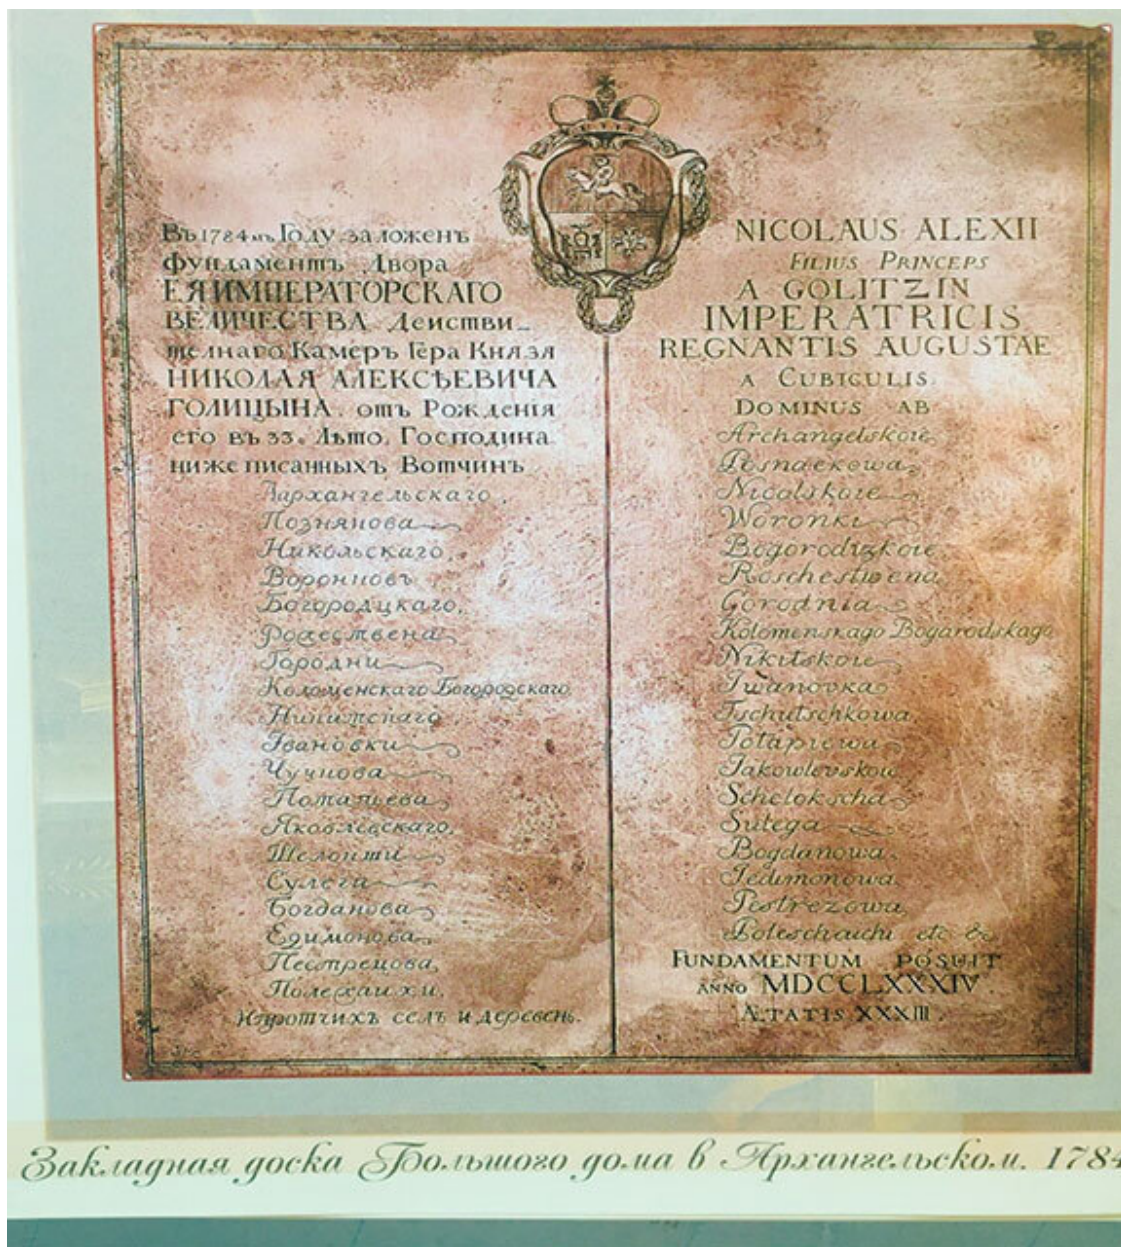 Въ 1784 мъ Году заложенъ
фундаментъ Двора
ЕЯ ИМПЕРАТОРСКАГО
ВЕЛИЧЕСТВА Деистви_
телнаго Камеръ Гера Князя
НИКОЛАЯ АЛЕКСѢЕВИЧА
ГОЛИЦЫНА. отъ Рожденїя
его въ 33е Лѣто, Господина
ниже писанныхъ Вотчинъ
Аархангельскаго,
Познякова
Никольскаго,
Воронковъ
Богородцкаго,
Рожествена
Городни
Коломенскаго Богородскаго
Никитскаго
Івановки
Чучкова
Потапьева
Яковлевскаго,
Шелокши
Сулеги
Богданова
Едимонова
Пестрецова,
Полехаихи,
И протчихъ селъ и деревень.
NICOLAUS ALEXII
FILIUS PRINCEPS
A GOLITZIN
IMPERATRICIS
REGNANTIS AUGUSTAE
A CUBICULIS.
DOMINUS AB
Archangelskoie,
Posnaekowa
Nicolskoie
Woronki
Bogorodizkoie
Roschestwena
Gorodnia
Kolomenskago Bogarodskago
Nikitskoie
Iwanovka
Tschutschkowa
Potapiewa
Jakowlevskoie
Schelokscha
Sulega
Bogdanowa
Jedimonowa
Pestrezowa
Poleschaichi etc &
FUNDAMENTUM POSUIT
ANNO MDCCLXXXIV.
ÆTATIS XXXIII.
Закладная доска Большого дома в Архангельском. 1784